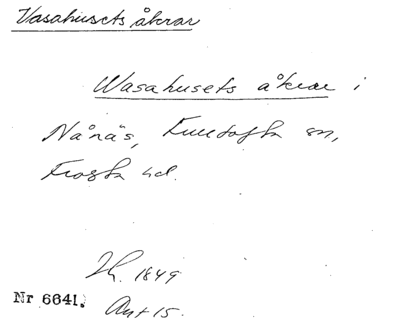 Vasahusets åkrar
Wasahusets åkrar i
Nånäs, Fulltofta sn,
Frosta hd.
Th. 1849
Nr 6641. Akt 15.